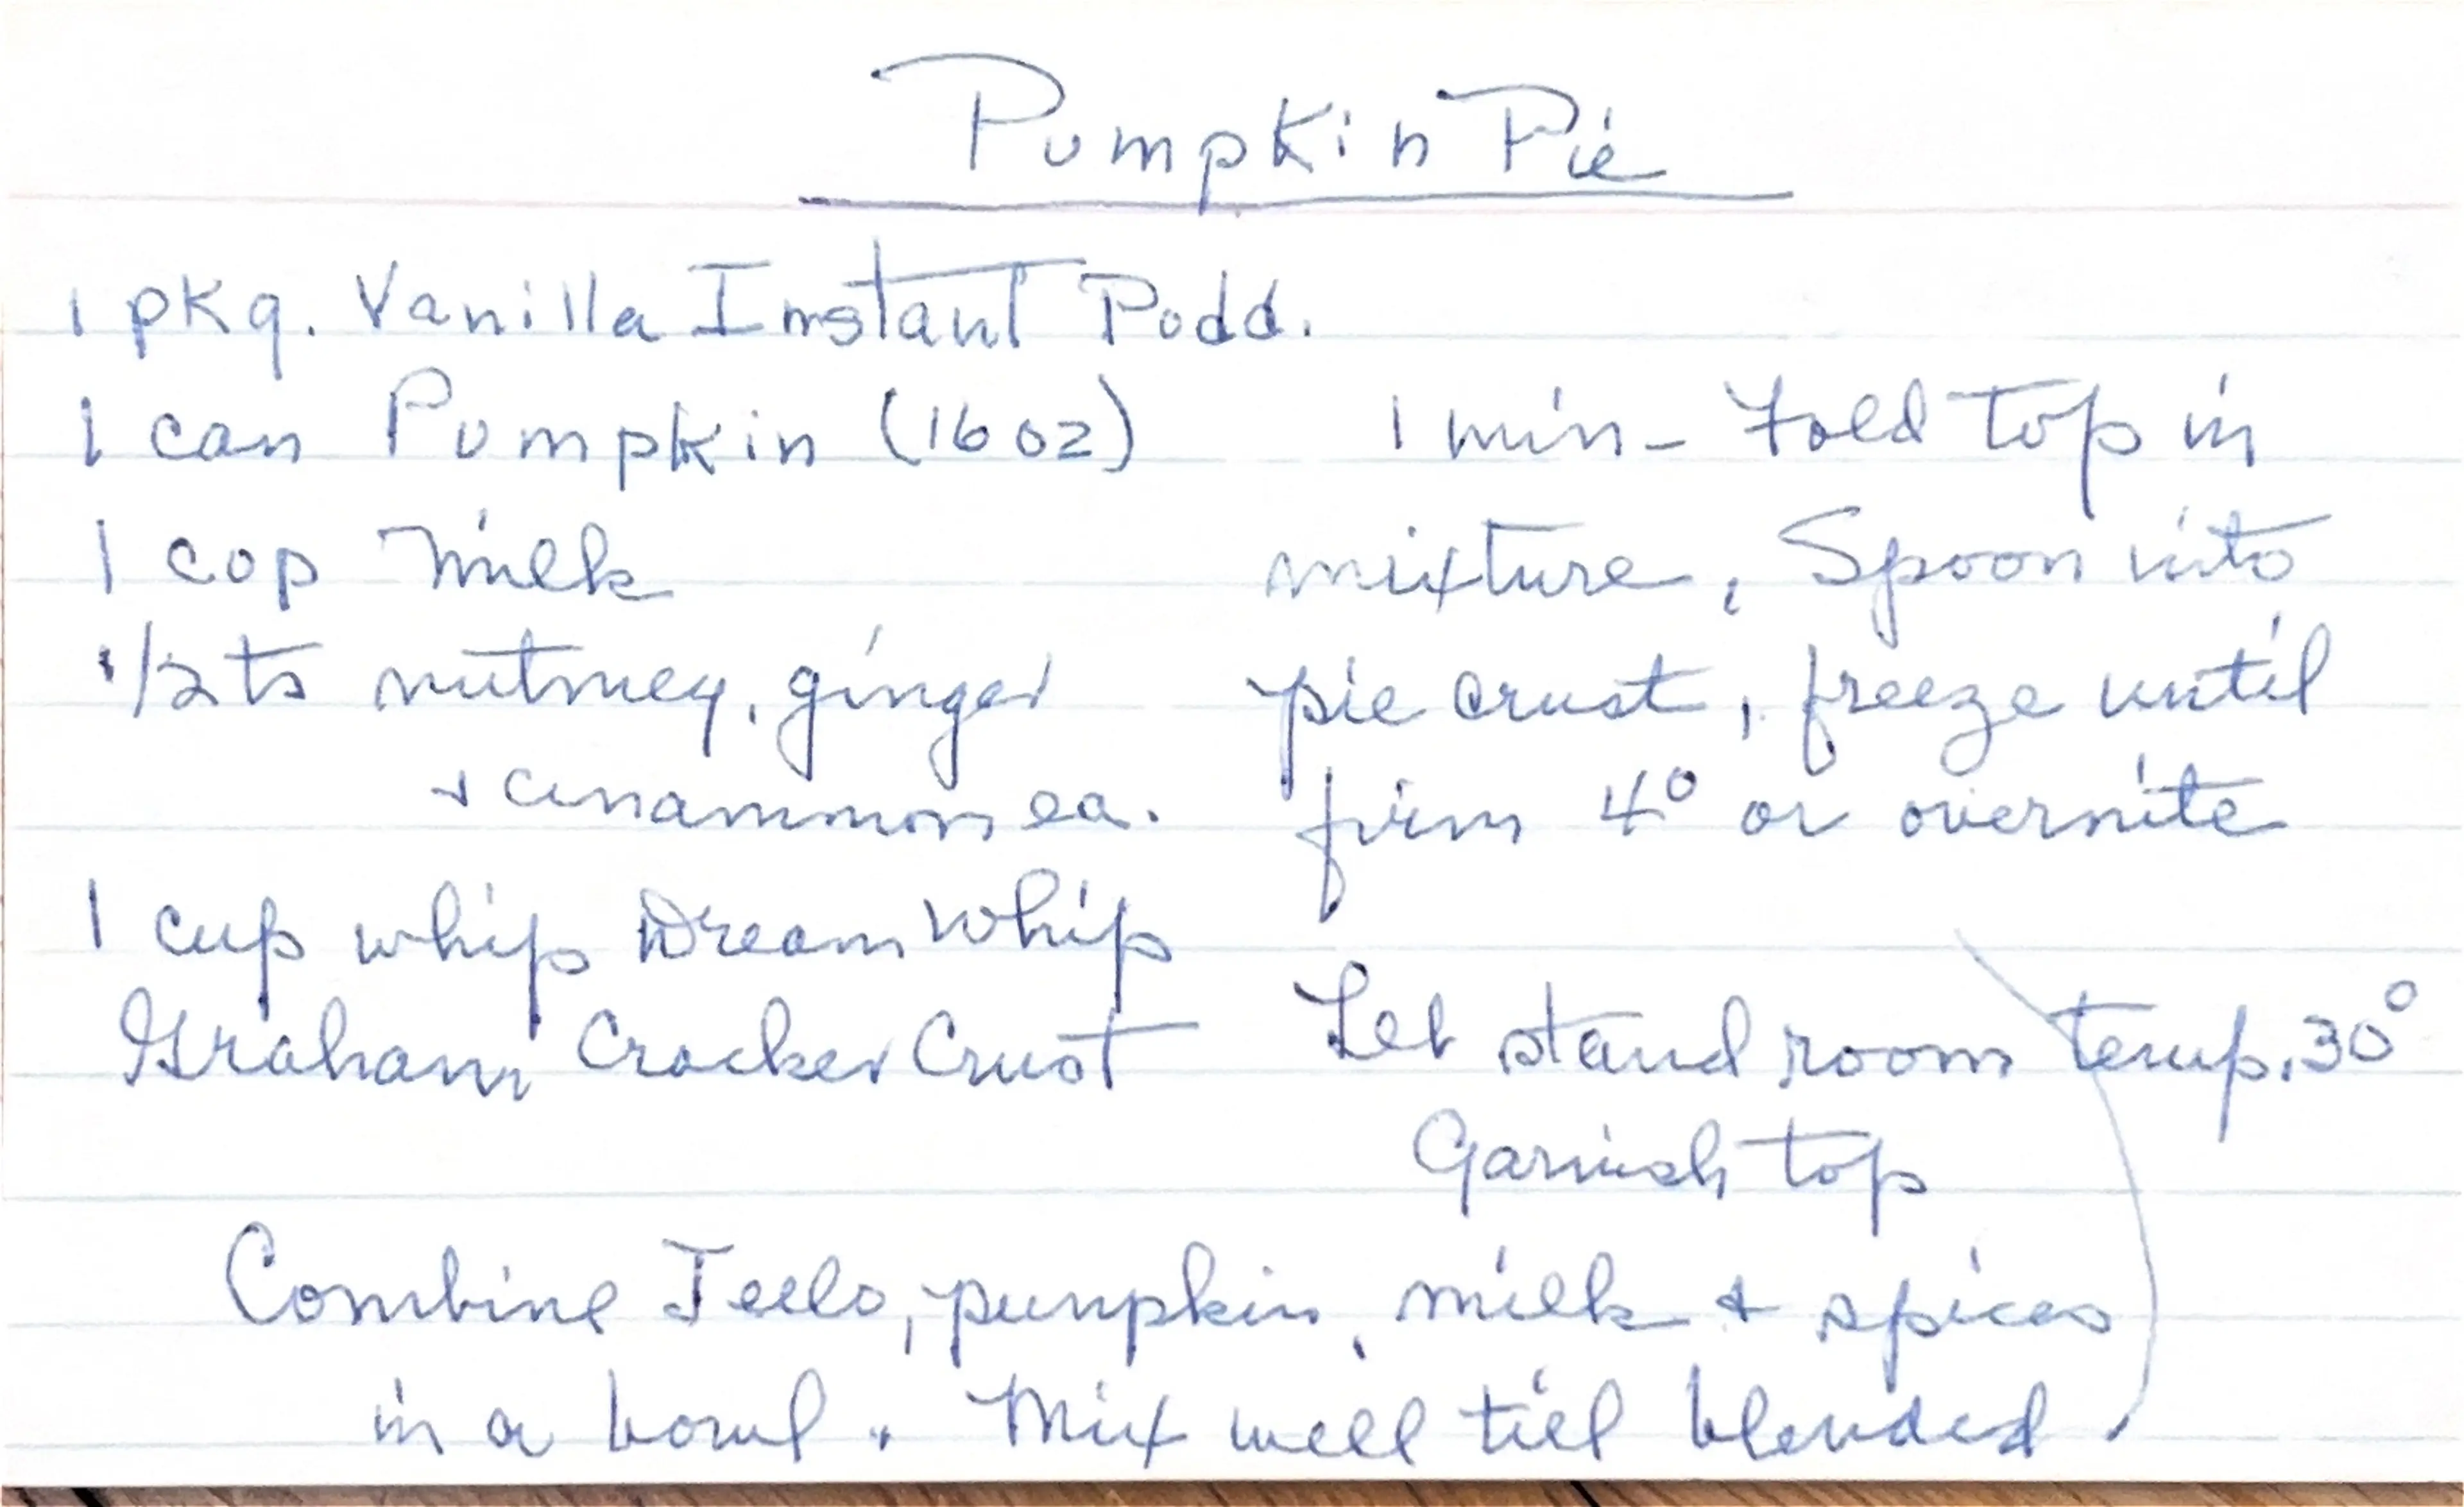 Pumpkin Pie
1 pkg. Vanilla Instant Pudd.
1 can Pumpkin (16 oz)
1 cup Milk
1/2 ts nutmeg, ginger
+ cinammon ea.
1 cup whip Dream Whip
Graham Cracker Crust
Combine Jello, pumpkin, milk + spices
in a bowl. Mix well till blended
1 min - Fold top in
mixture, Spoon into
pie crust, freeze until
firm 4° or overnite
Let stand room temp. 30°
Garnish top